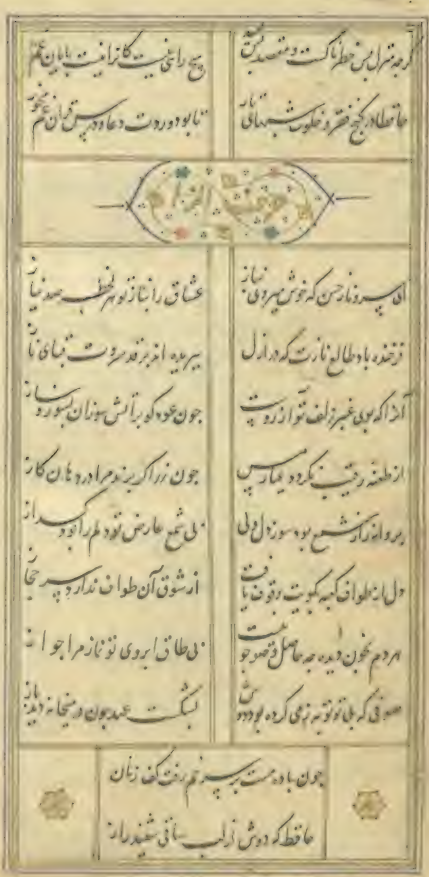 گرچه منزل بس خطرناکست و مقصد بس بعید
هیچ راهی نیست کانرا نیست پایان غم مخور
حافظا در کنج فقر و خلوت شبهای تار
تا بود وردت دعا و درس قرآن غم مخور
ای سرو ناز حسن که خوش میروی بناز
عشاق را بناز تو هر لحظه صد نیاز
فرخنده باد طالع نازت که در ازل
ببریده اند بر قد سروت قبای ناز
آنرا که بوی عنبر زلف تو آرزوست
چون عود گو بر آتش سوزان بسوز و ساز
از طعنه رقیب نگردد عیار من
چون زر اگر برند مرا در دهان گاز
پروانه را ز شمع بود سوز دل ولی
بی شمع عارض تو دلم را بود گداز
دل از طواف کعبه کویت وقوف یافت
از شوق آن طواف ندارد سر حجاز
هر دم بخون دیده چه حاصل وضو چو نیست
بی طاق ابروی تو نماز مرا جواز
صوفی که بی تو توبه ز می کرده بود دوش
بشکست عهد چون در میخانه دید باز
چون باده مست بر سر خم رفت کف زنان
حافظ که دوش از لب ساقی شنید راز